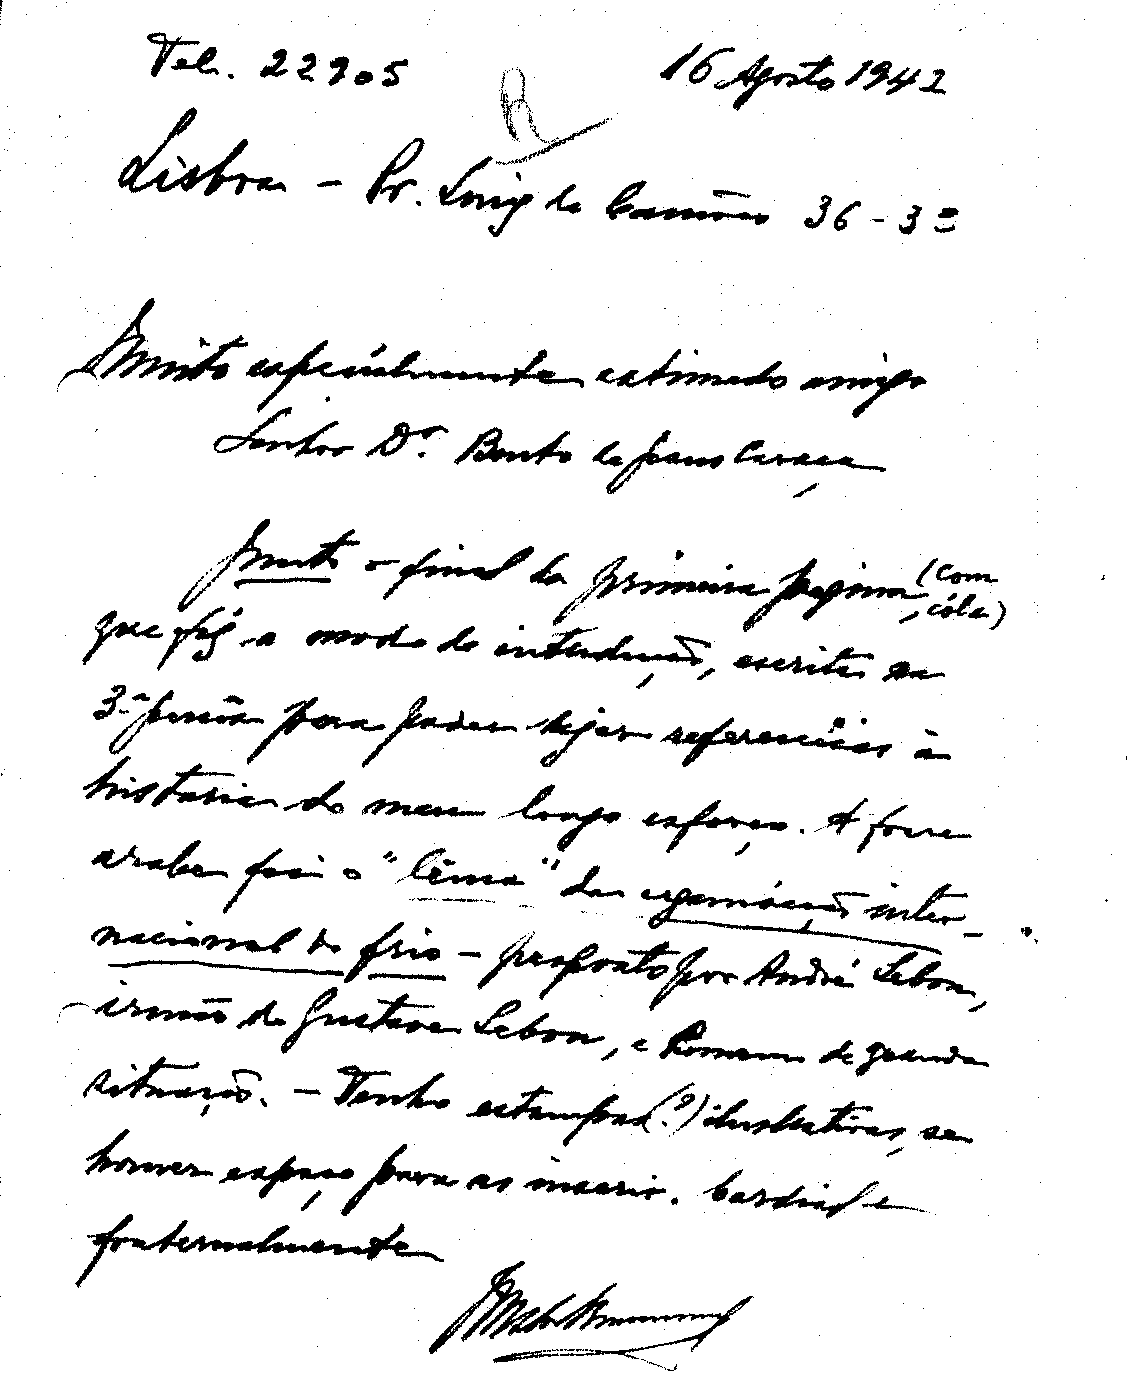 Tel. 22905 16 Agosto 1942
R
Lisboa - Pr. Luiz de Camões 36-3º
Muito especialmente estimado amigo
Senhor Dr. Bento de Jesus Caraça,
Junto o final da primeira pagina, (com cóla)
que fiz a modo de introdução, escrita na
3ª pessôa para poder fazer referencias à
historia do meu longo esforço. A
arabe foi o "lêma" da organisação inter-
nacional do frio - proposto por André Lebon,
irmão de Gustave Lebon, e Romano de grande
situação. - Tenho estampas (?) ilustrativas, se
houver espaço para as inserir. Cordial e
fraternalmente